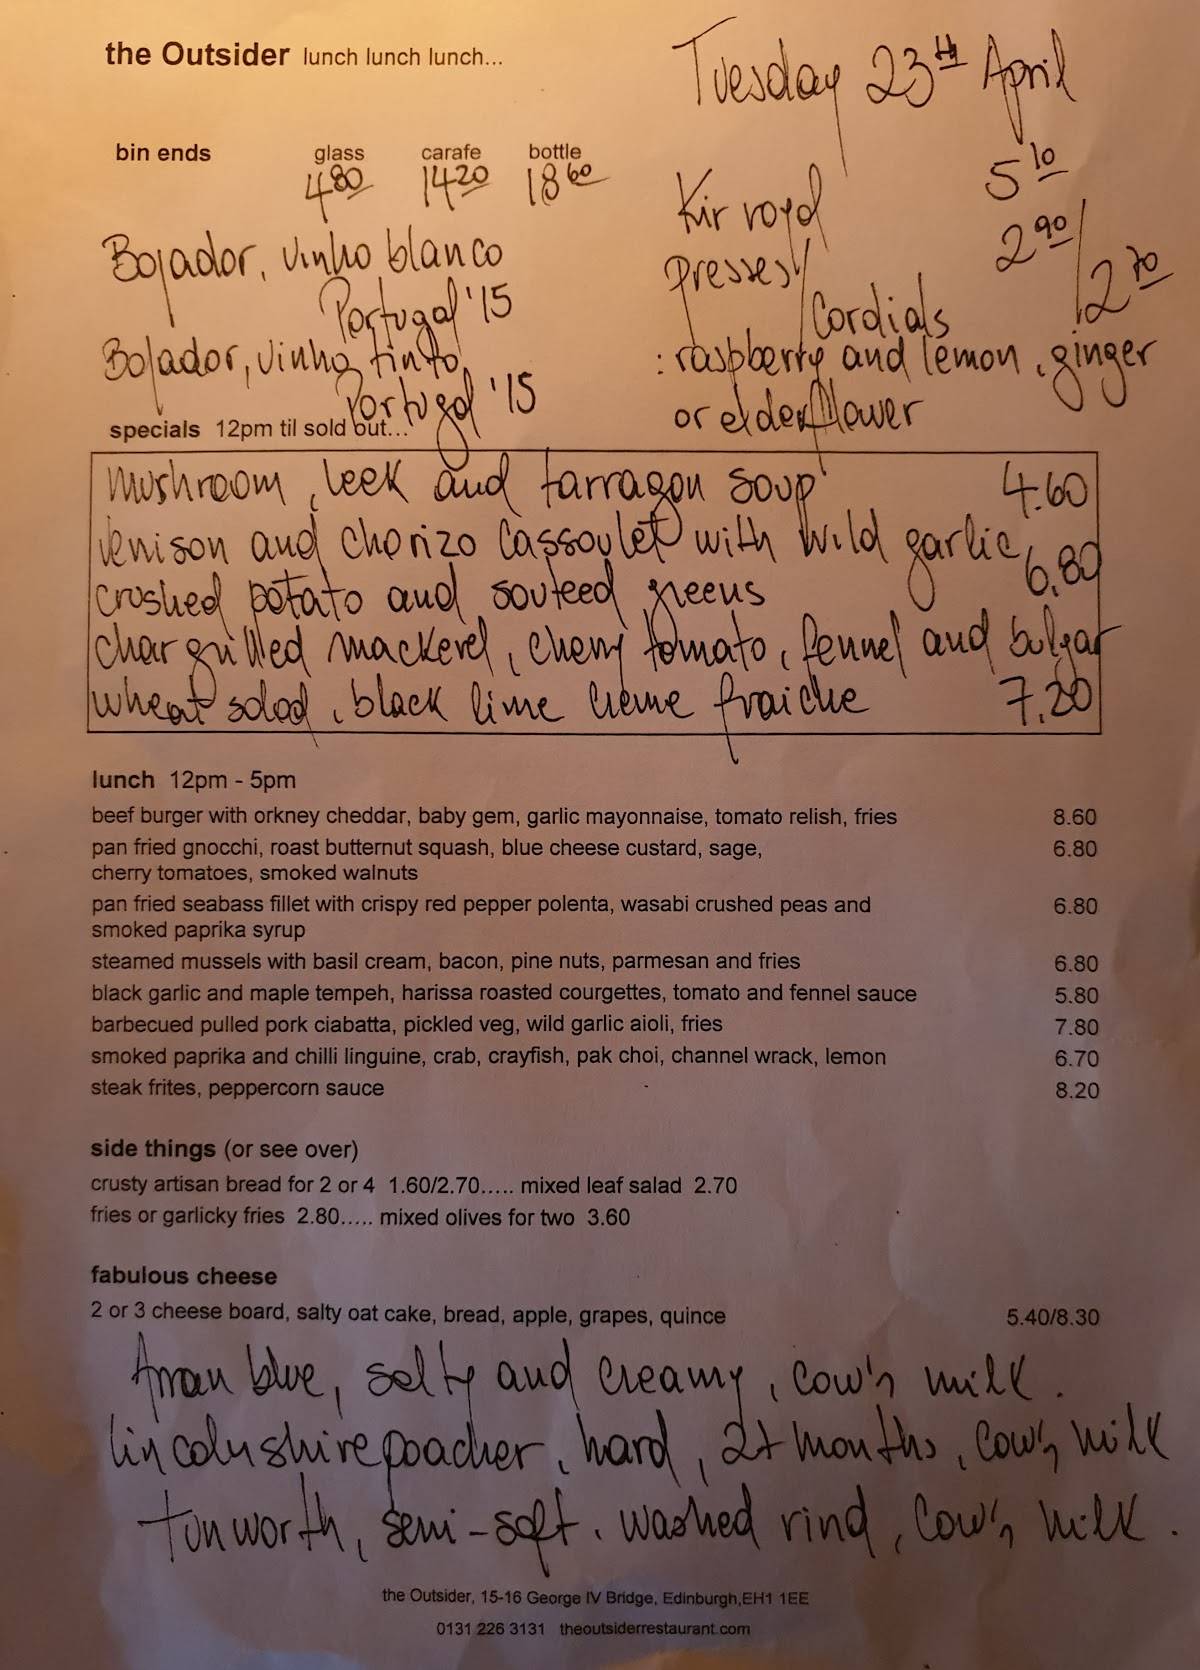 the Outsider lunch lunch lunch...
Tuesday 23th April
bin ends glass carafe bottle
4 80 14 20 18 60
Bojador, vinho blanco
Portugal '15
Bojador, vinho tinto,
Portugal '15
Kir royal 5 10
Presses/ 2 90/
Cordials 2 70
: raspberry and lemon, ginger
or elderflower
specials 12pm til sold out...
mushroom, leek and tarragon soup 4.60
venison and chorizo cassoulet with wild garlic
crushed potato and sauteed greens 6.80
chargrilled mackerel, cherry tomato, fennel and bulgar
wheat salad, black lime creme fraiche 7.20
lunch 12pm - 5pm
beef burger with orkney cheddar, baby gem, garlic mayonnaise, tomato relish, fries 8.60
pan fried gnocchi, roast butternut squash, blue cheese custard, sage, 6.80
cherry tomatoes, smoked walnuts
pan fried seabass fillet with crispy red pepper polenta, wasabi crushed peas and 6.80
smoked paprika syrup
steamed mussels with basil cream, bacon, pine nuts, parmesan and fries 6.80
black garlic and maple tempeh, harissa roasted courgettes, tomato and fennel sauce 5.80
barbecued pulled pork ciabatta, pickled veg, wild garlic aioli, fries 7.80
smoked paprika and chilli linguine, crab, crayfish, pak choi, channel wrack, lemon 6.70
steak frites, peppercorn sauce 8.20
side things (or see over)
crusty artisan bread for 2 or 4 1.60/2.70..... mixed leaf salad 2.70
fries or garlicky fries 2.80..... mixed olives for two 3.60
fabulous cheese
2 or 3 cheese board, salty oat cake, bread, apple, grapes, quince 5.40/8.30
Arran blue, salty and creamy, cow's milk.
lincolnshire poacher, hard, 2+ months, cow's milk
tunworth, semi-soft, washed rind, cow's milk.
the Outsider, 15-16 George IV Bridge, Edinburgh,EH1 1EE
0131 226 3131 theoutsiderrestaurant.com